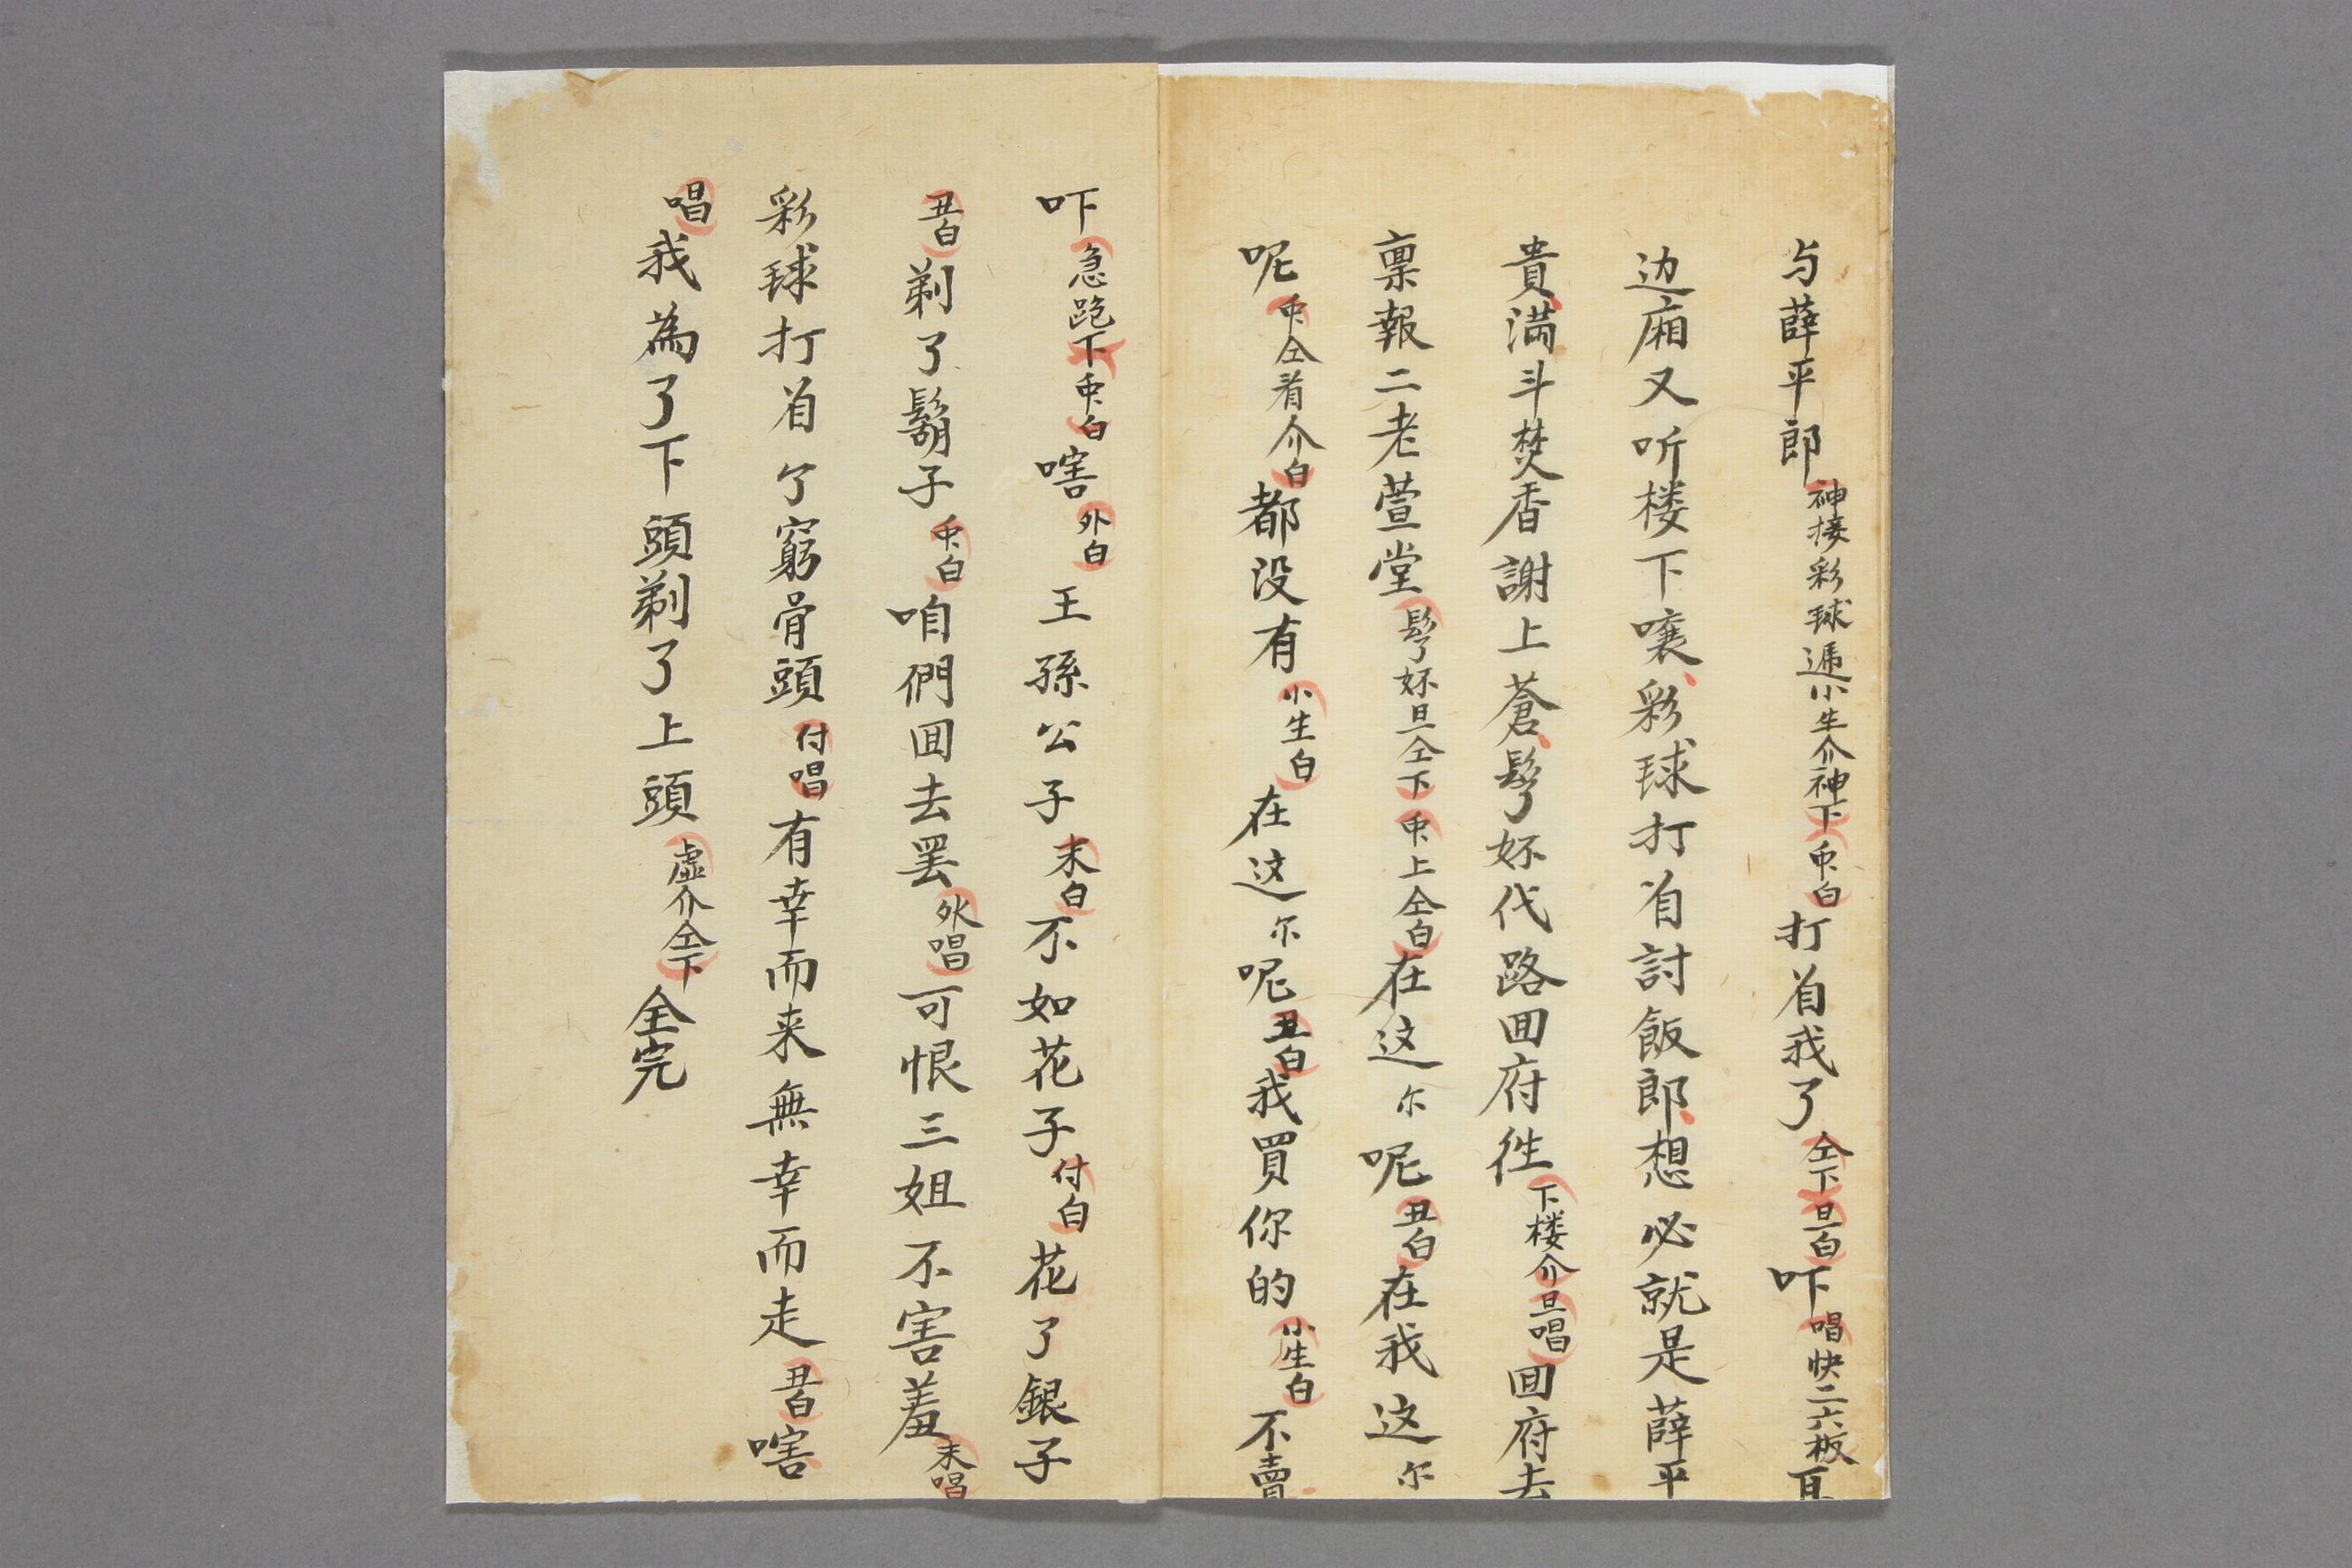 与薛平郎神接彩球遞小生介神下衆白打着我了仝下旦白吓唱快二六板耳
边廂又听楼下嚷彩球打着討飯郎想必就是薛平
貴滿斗焚香謝上蒼髩妚代路囬府徃下楼介旦唱囬府去
禀報二老萱堂髩妚旦仝下衆上仝白在这尓呢丑白在我这尓
呢衆仝看介白都没有小生白在这尓呢丑白我買你的小生白不賣
吓急跑下衆白嗐外白王孫公子末白不如花子付白花了銀子
丑白剃了鬍子衆白咱們囬去罢外唱可恨三姐不害羞末唱
彩球打着个窮骨頭付唱有幸而来無幸而走丑白嗐
唱我為了下頭剃了上頭虚介仝下全完